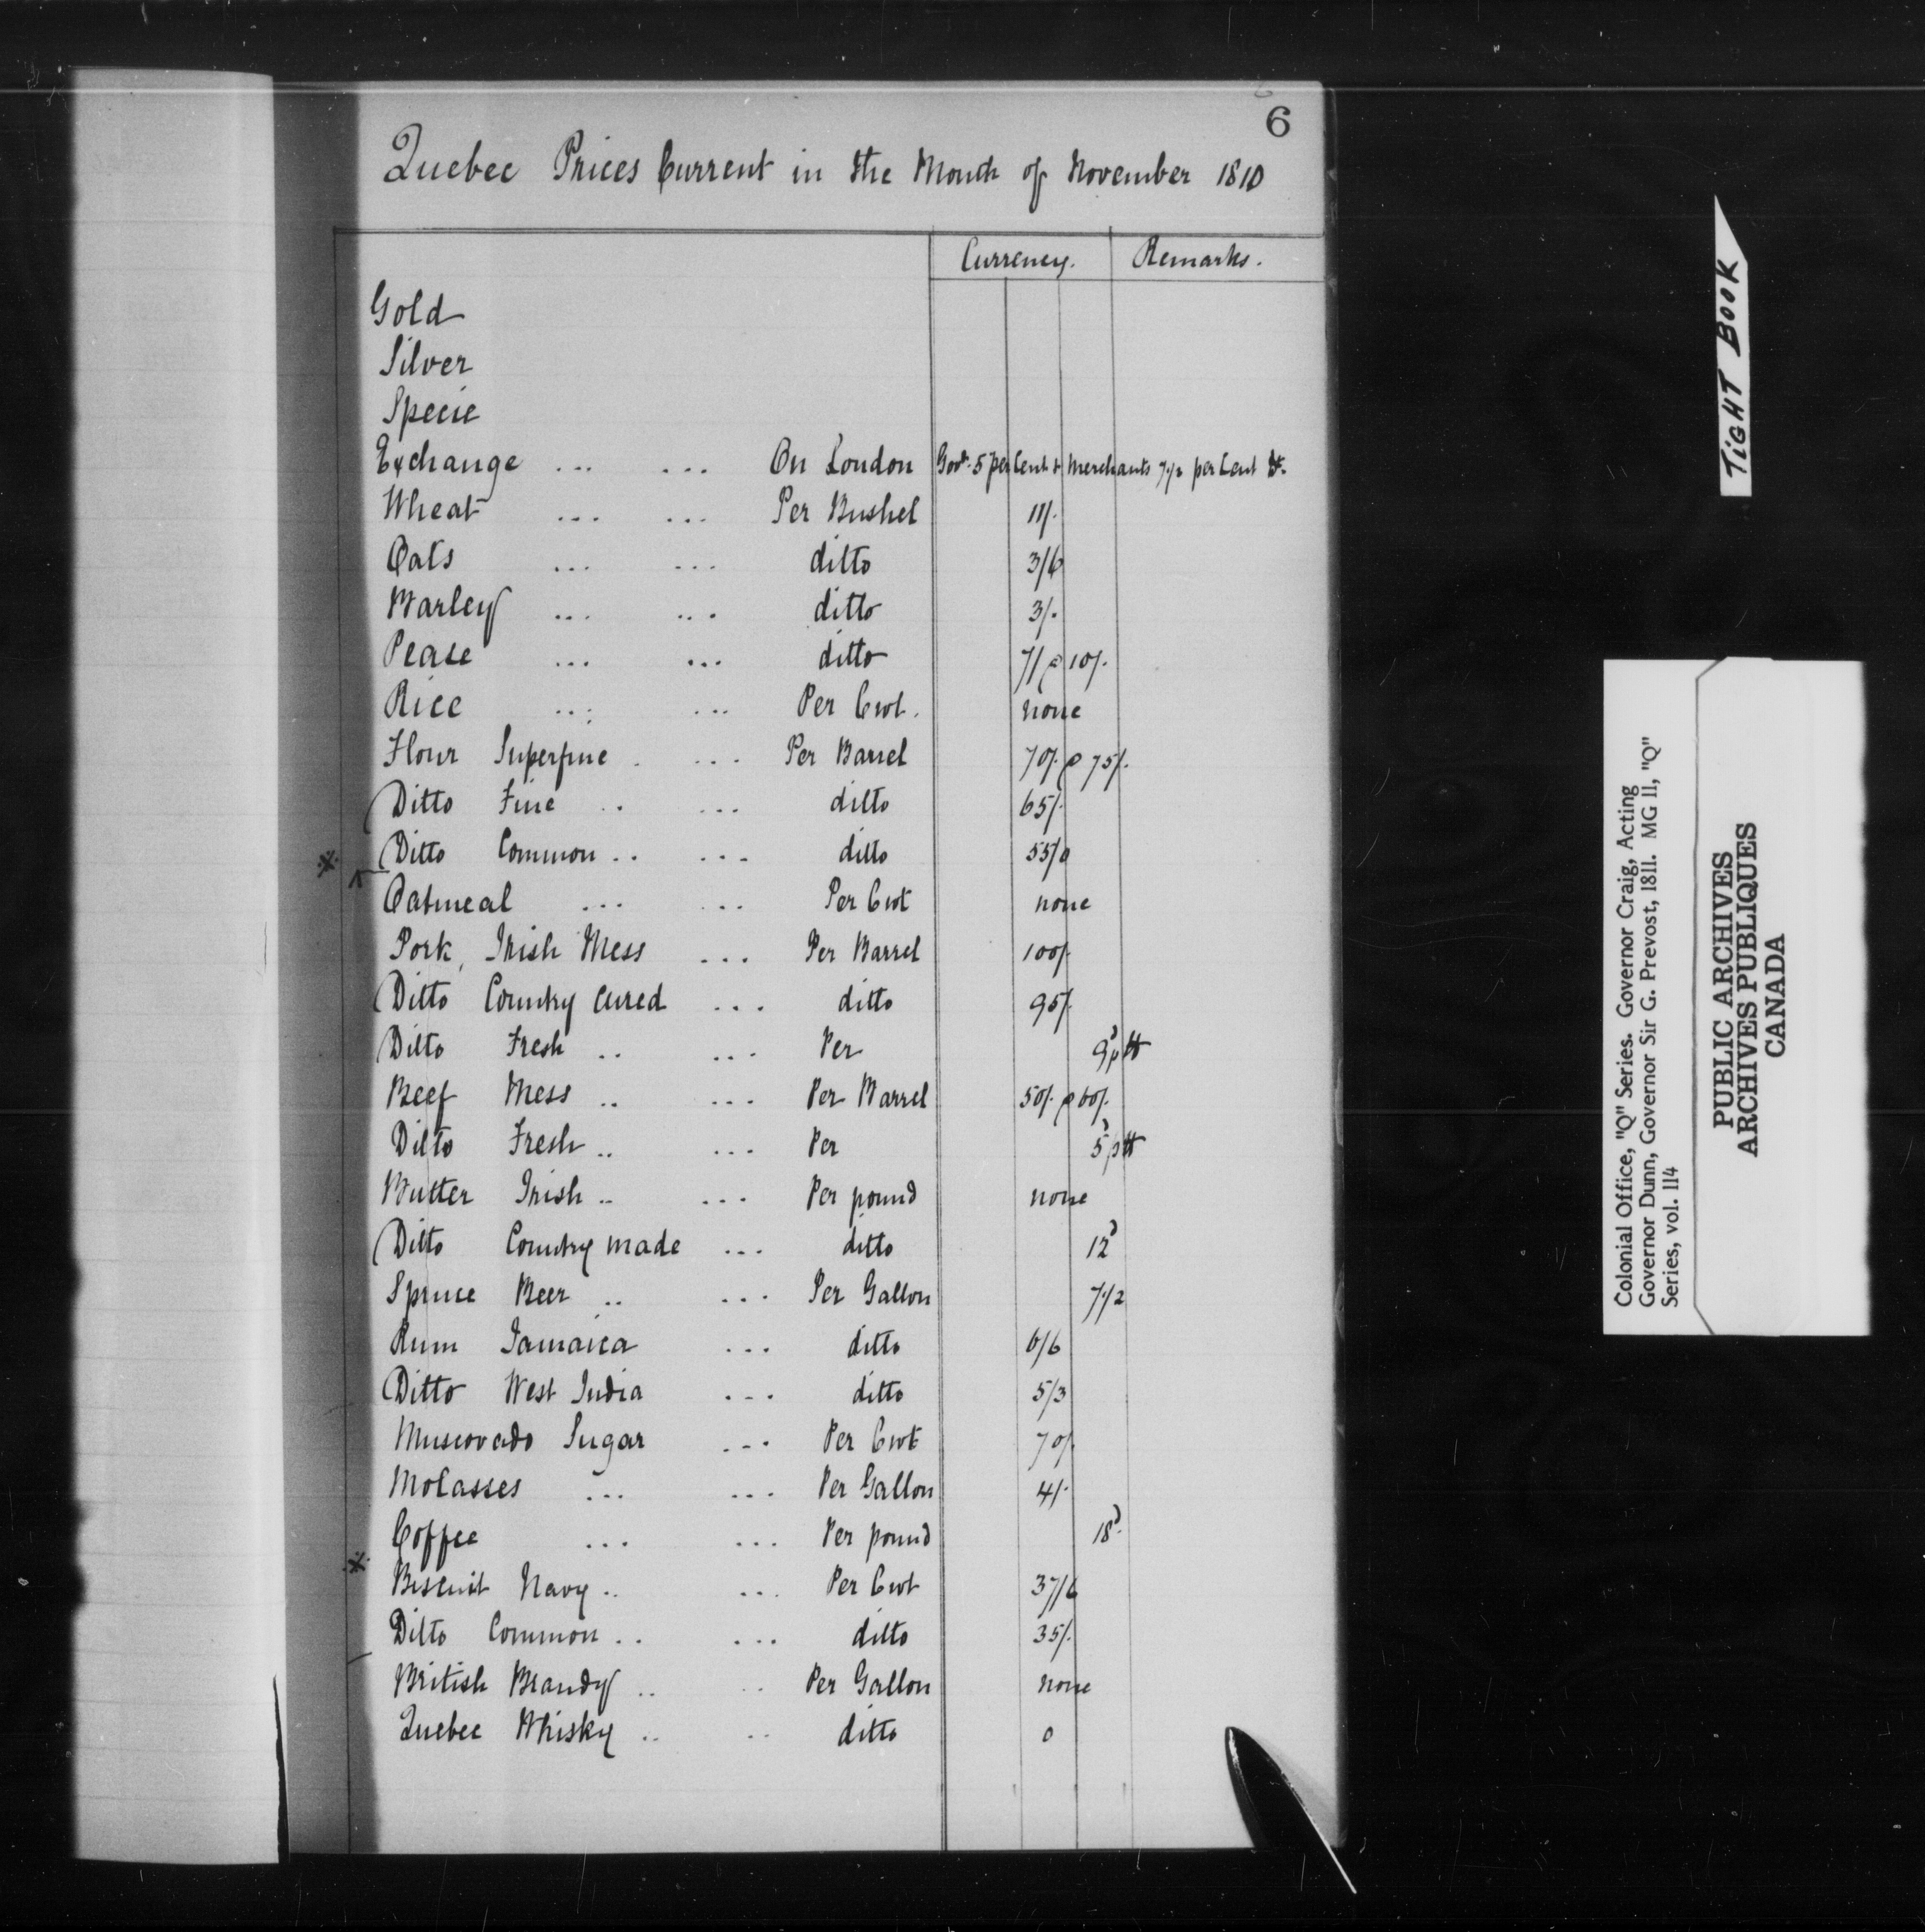 6
Quebec Prices Current in the Month of November 1810
Currency. Remarks.
Gold
Silver
Specie
Exchange ... ... On London Govt. 5 per Cent & Merchants 7 1/2 per Cent
Wheat ... ... Per Bushel 11/.
Oats ... ... ditto 3/6
Barley ... ... ditto 3/.
Pease ... ... ditto 7/ @ 10/.
Rice ... ... Per Cwt. none
Flour Superfine . ... Per Barrel 70/. @ 75/.
Ditto Fine .. ... ditto 65/.
Ditto Common .. ... ditto 55/0
Oatmeal ... ... Per Cwt none
Pork, Irish Mess ... Per Barrel 100/.
Ditto Country cured ... ditto 95/.
Ditto Fresh .. ... Per 9d p lb
Beef Mess .. ... Per Barrel 50/. @ 60/.
Ditto Fresh .. ... Per 5d p lb
Butter Irish .. ... Per pound none
Ditto Country made ... ditto 12d
Spruce Beer .. ... Per Gallon 7 1/2
Rum Jamaica ... ditto 6/6
Ditto West India ... ditto 5/3
Muscovado Sugar ... Per Cwt 70/.
Molasses ... ... Per Gallon 4/.
Coffee ... ... Per pound 18d.
Biscuit Navy .. ... Per Cwt 37/6
Ditto Common .. ... ditto 35/.
British Brandy .. .. Per Gallon none
Quebec Whisky .. .. ditto 0
TIGHT BOOK
Colonial Office, "Q" Series. Governor Craig, Acting
Governor Dunn, Governor Sir G. Prevost, 1811. MG 11, "Q"
Series, vol. 114
PUBLIC ARCHIVES
ARCHIVES PUBLIQUES
CANADA